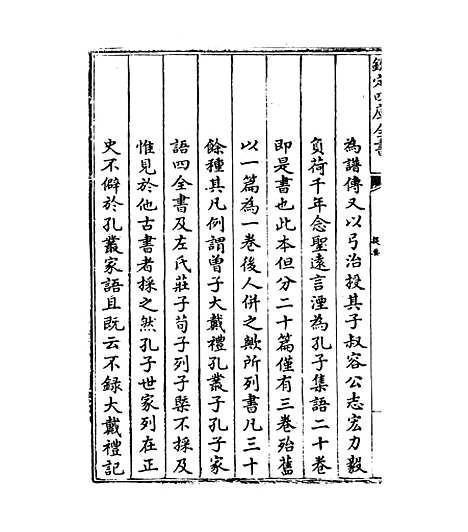 欽定四庫全書
提要
為譜傳又以弓冶投其子叔容公志宏力毅
負荷千年念聖遠言湮為孔子集語二十卷
即是書也此本但分二十篇僅有三卷殆舊
以一篇為一卷後人併之歟所列書凡三十
餘種其凡例謂曾子大戴禮孔叢子孔子家
語四全書及左氏莊子荀子列子槩不採及
惟見於他古書者採之然孔子世家列在正
史不僻於孔叢家語且既云不録大戴禮記